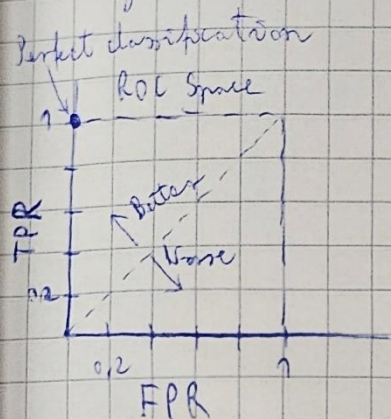 Perfect classification
ROC Space
1
Better
TPR
Worse
0,2
0,2
1
FPR